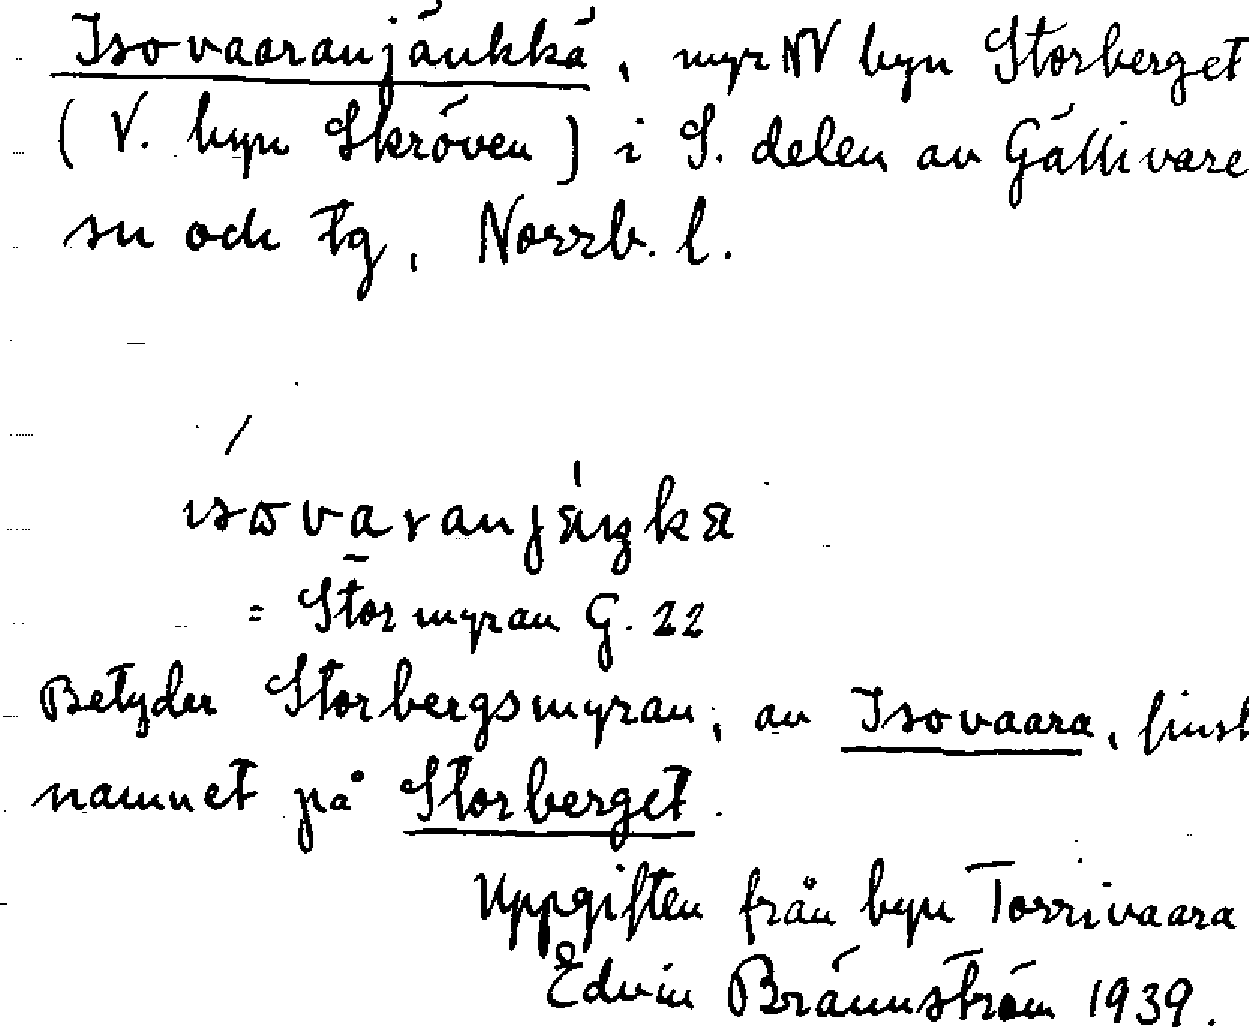 Isovaaranjänkkä, myr NV byn Storberget
(V. byn Skröven) i S. delen av Gällivare
sn och tg, Norrb. l.
= Stormyran G. 22
Betyder Storbergsmyran, av Isovaara, finsk
namnet på Storberget.
Uppgiften från byn Torrivaara
Edvin Brännström 1939.